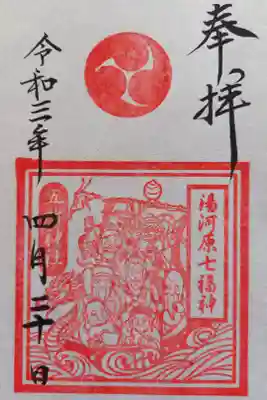 奉拝
湯河原七福神
令和三年
四月二十日